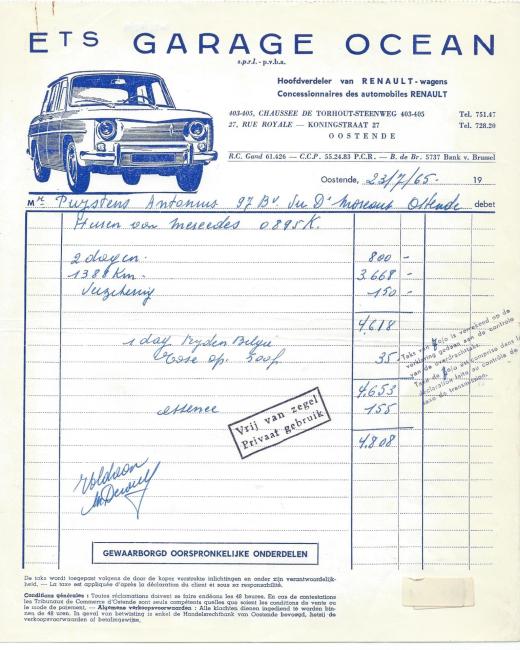 ETS GARAGE OCEAN
s.p.r.l. - p.v.b.a.
Hoofdverdeler van RENAULT-wagens
Concessionnaires des automobiles RENAULT
403-405, CHAUSSEE DE TORHOUT-STEENWEG 403-405 Tel. 751.47
27, RUE ROYALE — KONINGSTRAAT 27 Tel. 728.20
OOSTENDE
R.C. Gand 61.426 — C.C.P. 55.24.83 P.C.R. — B. de Br. 5737 Bank v. Brussel
Oostende, 23/7/65- 19
Mr Puystens Antonius 97 Bv. du Dr Moreaux Ostende debet
Huren van mercedes 0895K.
2 dagen. 800 -
1388 Km. 3.668 -
Verzekering 150 -
4.618
1 dag Ryden België
op 500f 35 -
Taks van is verrekend op de
verklaring gedaan aan de controle
van de overdrachttaks.
Taxe de est comprise dans la
déclaration faite au contrôle de
taxe de transmission.
4.653
essence 155
4.808
Vrij van zegel
Privaat gebruik
Voldaan
GEWAARBORGD OORSPRONKELIJKE ONDERDELEN
De taks wordt toegepast volgens de door de koper verstrekte inlichtingen en onder zijn verantwoordelijk-
heid. — La taxe est appliquée d'après la déclaration du client et sous sa responsabilité.
Conditions générales : Toutes réclamations doivent se faire endéans les 48 heures. En cas de contestations
les Tribunaux de Commerce d'Ostende sont seuls compétents quelles que soient les conditions de vente ou
le mode de paiement. — Algemene verkoopsvoorwaarden : Alle klachten dienen ingediend te worden bin-
nen de 48 uren. In geval van betwisting is enkel de Handelsrechtbank van Oostende bevoegd, hetzij de
verkoopsvoorwaarden of betalingswijze.